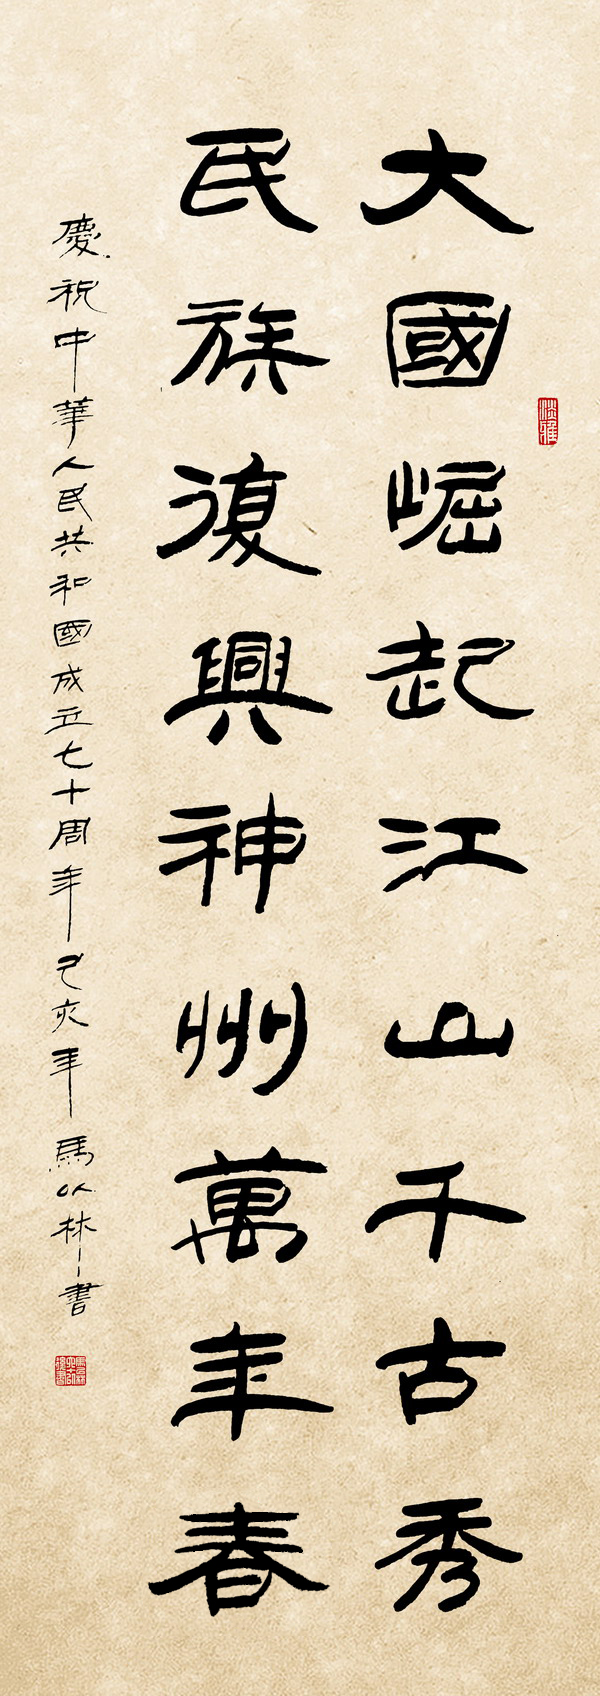 大國崛起江山千古秀
民族復興神州萬年春
慶祝中華人民共和國成立七十周年己亥年馬以林書
淡雅